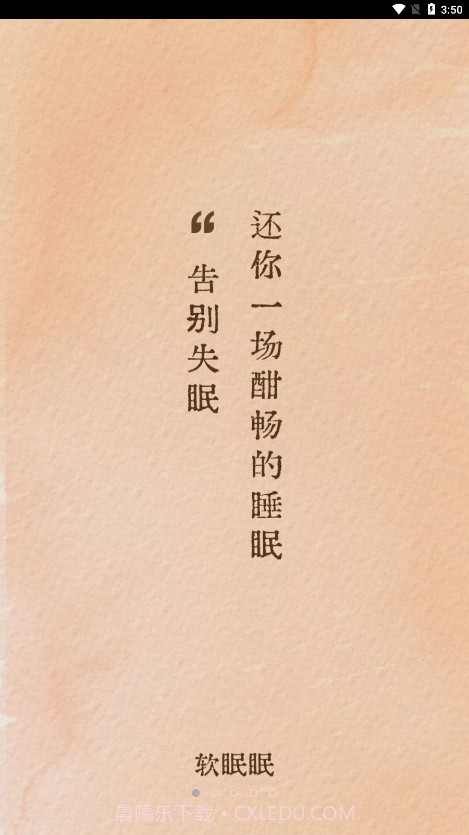 3:50
“告别失眠
还你一场酣畅的睡眠
软眠眠
晨曦乐下载•CXLEDU.COM